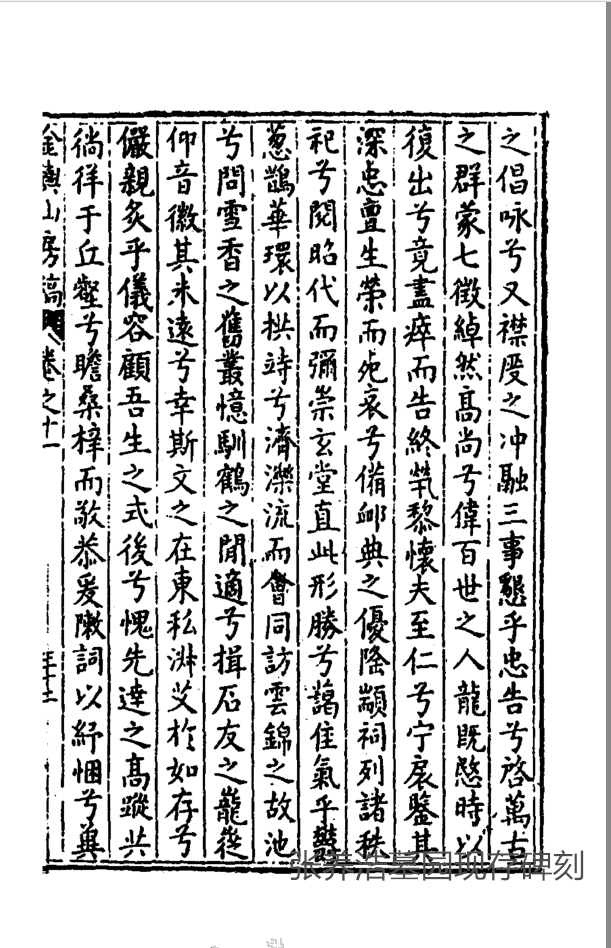 之倡咏兮又襟度之冲融三事懇乎忠告兮啓萬古
之群蒙七徵綽然高尚兮偉百世之人龍既愍時以
復出兮竟盡瘁而告終煢黎懷夫至仁兮宁扆鑒其
深忠亶生榮而死哀兮備邮典之優隆顓祠列諸秩
祀兮閱昭代而彌崇玄堂直此形勝兮藹佳氣乎鬱
葱鵲華環以拱峙兮濟濼流而會同訪雲錦之故池
兮問雪香之舊叢憶馴鶴之閒適兮揖石友之巃嵸
仰音徽其未遠兮幸斯文之在東私淑艾於如存兮
儼親炙乎儀容顧吾生之式後兮愧先達之高蹤共
徜徉于丘壑兮瞻桑梓而敬恭爰陳詞以紓悃兮冀
金輿山房稿 卷之十一
张养浩墓园现存碑刻